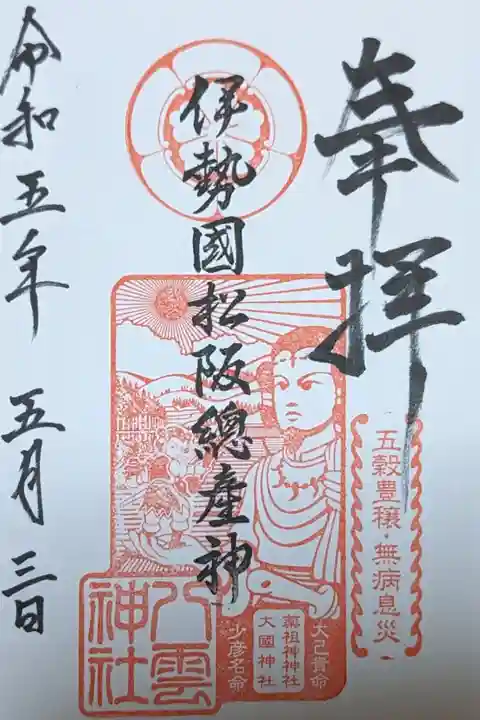 奉拝
五穀豊穣・無病息災
伊勢國松阪總産神
大己貴命
薬祖神神社
大國神社
少彦名命
八雲
神社
令和五年 五月 三日